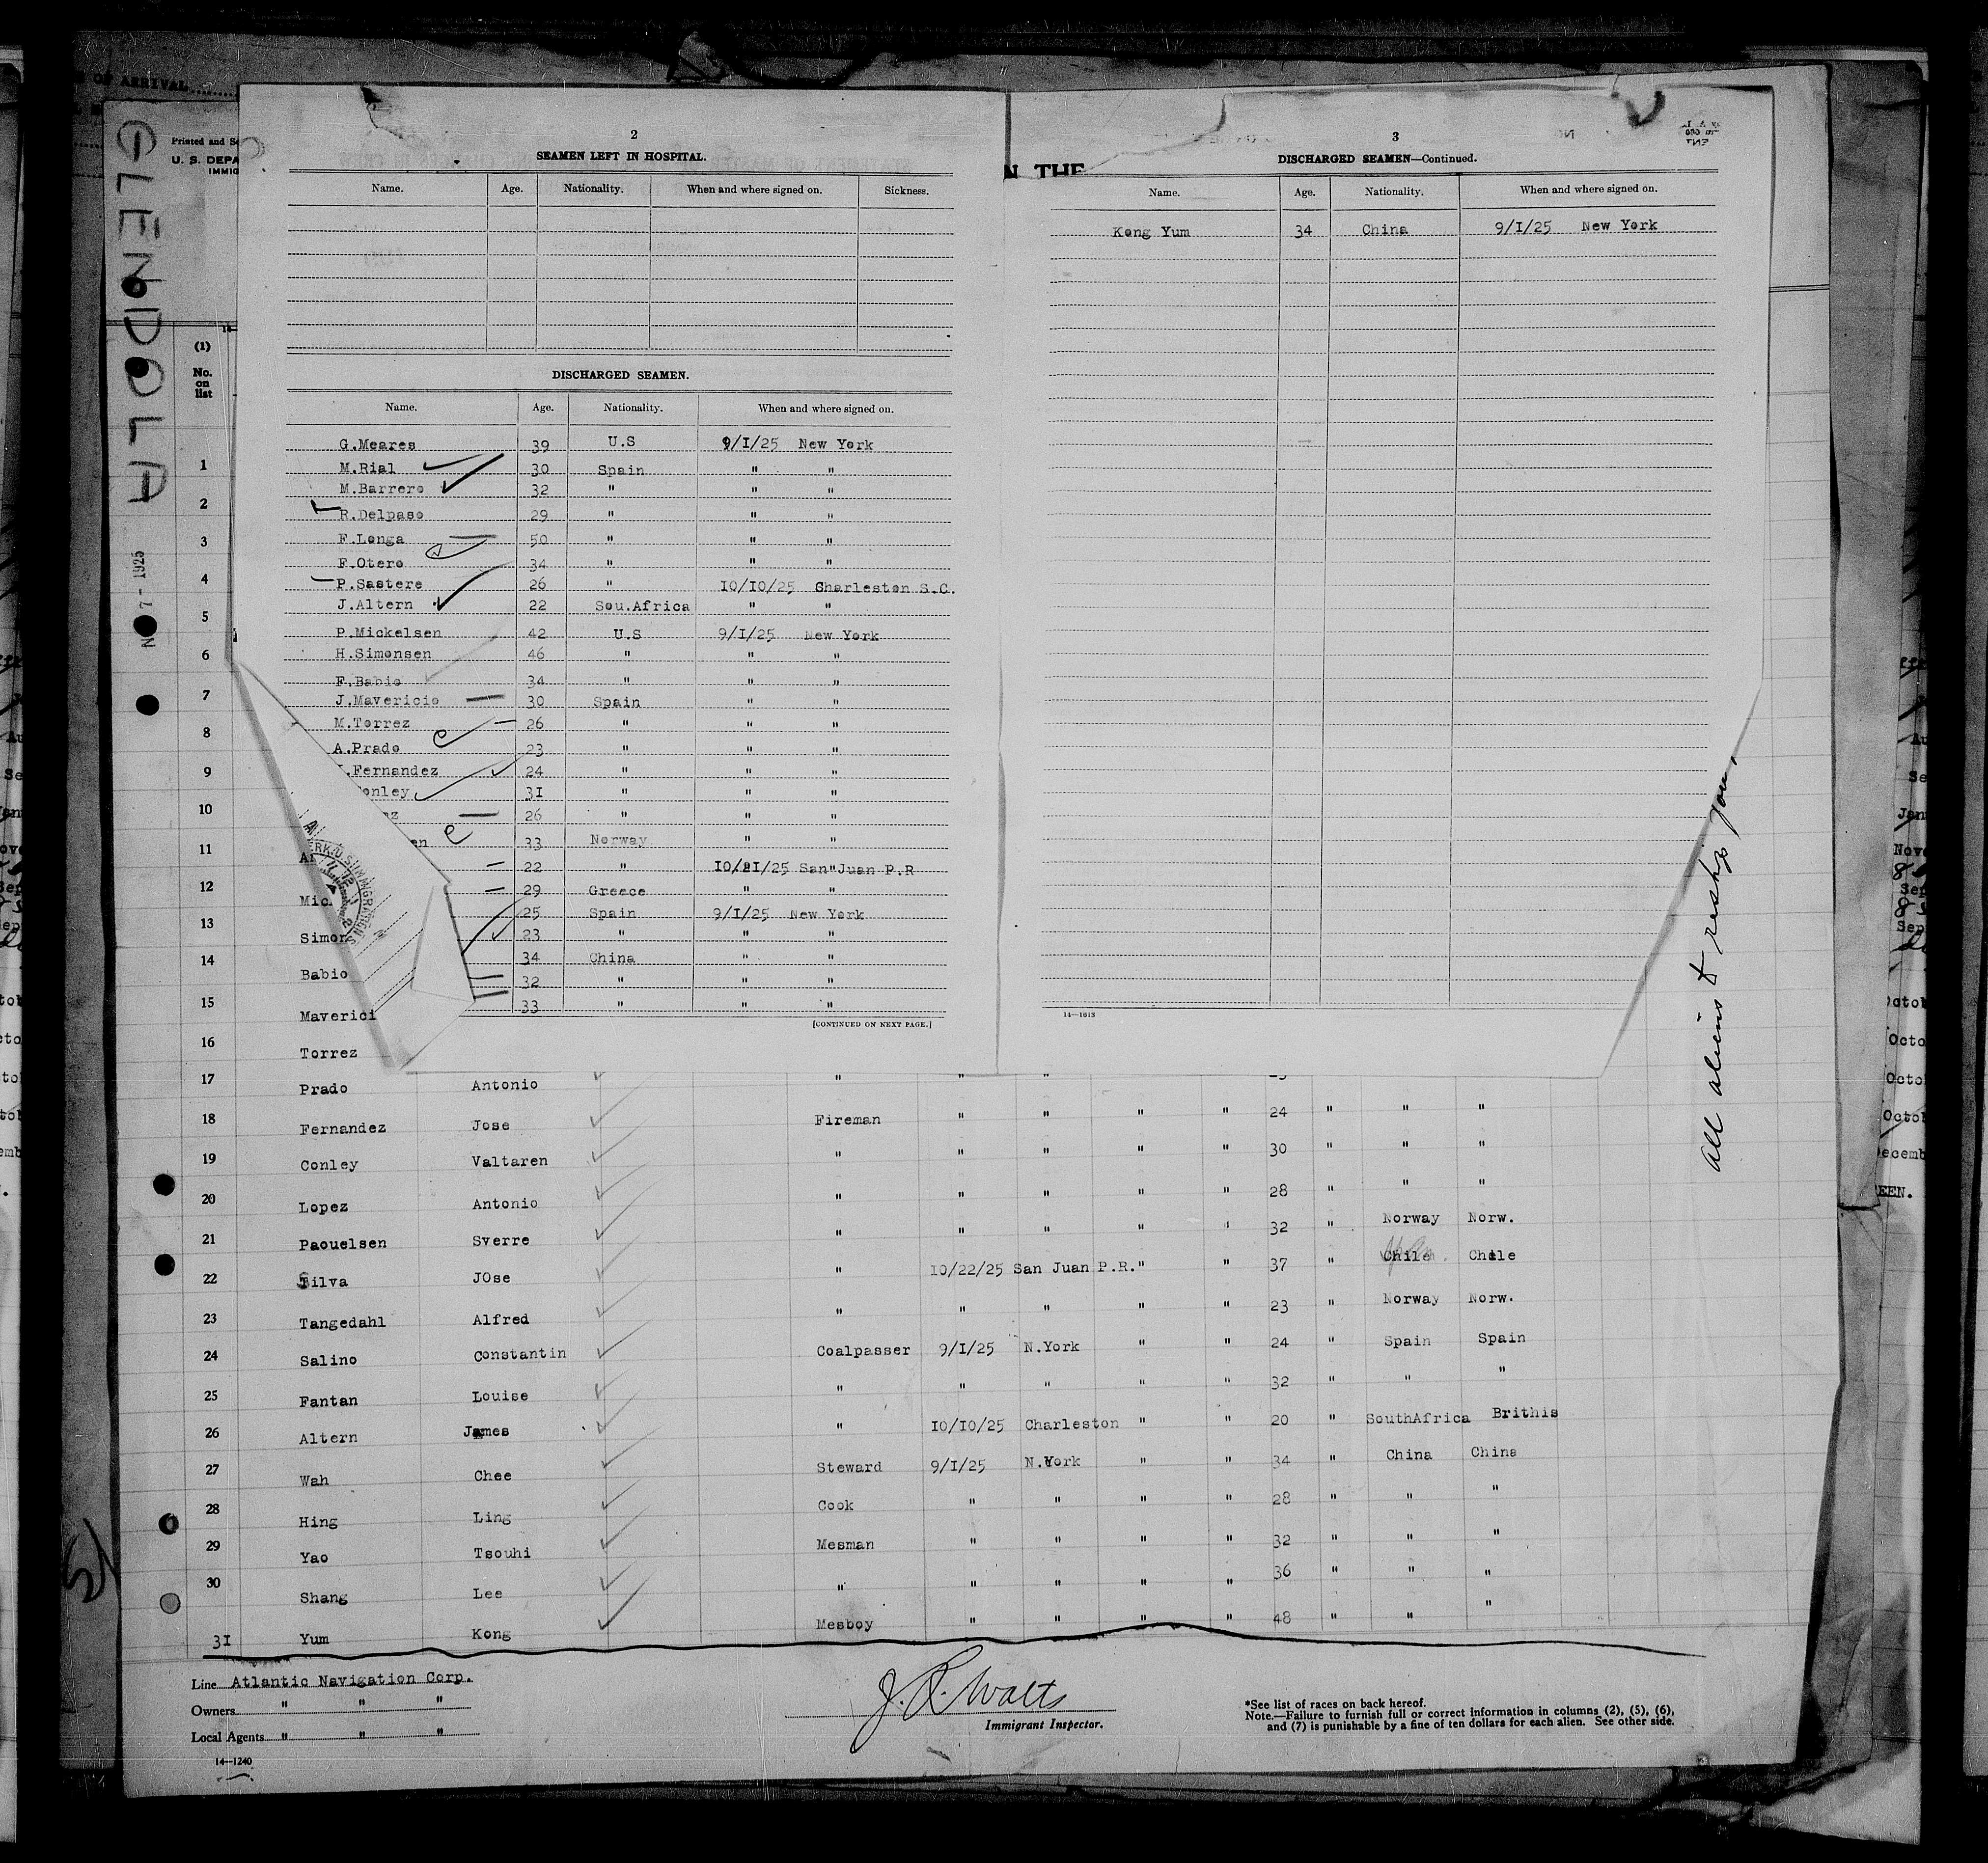 OF ARRIVAL
GLENDOLA
NOV 7 - 1925
Printed and So
U. S. DEPA
IMMIG
(1)
No.
on
list
2
SEAMEN LEFT IN HOSPITAL.
Name. Age. Nationality. When and where signed on. Sickness.
DISCHARGED SEAMEN.
Name. Age. Nationality. When and where signed on.
G.Meares 39 U.S 9/1/25 New York
M.Rial 30 Spain " "
M.Barrero 32 " " "
R.Delpaso 29 " " "
F.Longa 50 " " "
F.Otero 34 " " "
P.Sastere 26 " 10/10/25 Charleston S.C.
J.Altern 22 Sou.Africa " "
P.Mickelsen 42 U.S 9/1/25 New York
H.Simonsen 46 " " "
F.Babio 34 " " "
J.Mavericio 30 Spain " "
M.Torrez 26 " " "
A.Prado 23 " " "
.Fernandez 24 " " "
onley 31 " " "
ez 26 " " "
en 33 Norway " "
22 " 10/21/25 San Juan P.R
29 Greece " "
25 Spain 9/1/25 New York
23 " " "
34 China " "
32 " " "
33 " " "
[CONTINUED ON NEXT PAGE.]
N THE
3
DISCHARGED SEAMEN—Continued.
Name. Age. Nationality. When and where signed on.
Kong Yum 34 China 9/1/25 New York
14—1613
1
2
3
4
5
6
7
8
9
10
11
12 Mic
13 Simon
14 Babio
15 Maverici
16 Torrez
17 Prado Antonio " " "
18 Fernandez Jose Fireman " " " " 24 " " "
19 Conley Valtaren " " " " " 30 " " "
20 Lopez Antonio " " " " " 28 " " "
21 Paouelsen Sverre " " " " " 32 " Norway Norw.
22 Silva JOse " 10/22/25 San Juan P.R. " " 37 " Chile Chile
23 Tangedahl Alfred " " " " " 23 " Norway Norw.
24 Salino Constantin Coalpasser 9/1/25 N.York " " 24 " Spain Spain
25 Fantan Louise " " " " " 32 " " "
26 Altern James " 10/10/25 Charleston " " 20 " SouthAfrica Brithis
27 Wah Chee Steward 9/1/25 N.York " " 34 " China China
28 Hing Ling Cook " " " " 28 " " "
29 Yao Tsouhi Mesman " " " " 32 " " "
30 Shang Lee " " " " " 36 " " "
31 Yum Kong Mesboy " " " " 48 " " "
Line Atlantic Navigation Corp.
Owners " " "
Local Agents " " "
14—1240
J. R. Walts
Immigrant Inspector.
*See list of races on back hereof.
Note.—Failure to furnish full or correct information in columns (2), (5), (6),
and (7) is punishable by a fine of ten dollars for each alien. See other side.
All aliens to reship for.